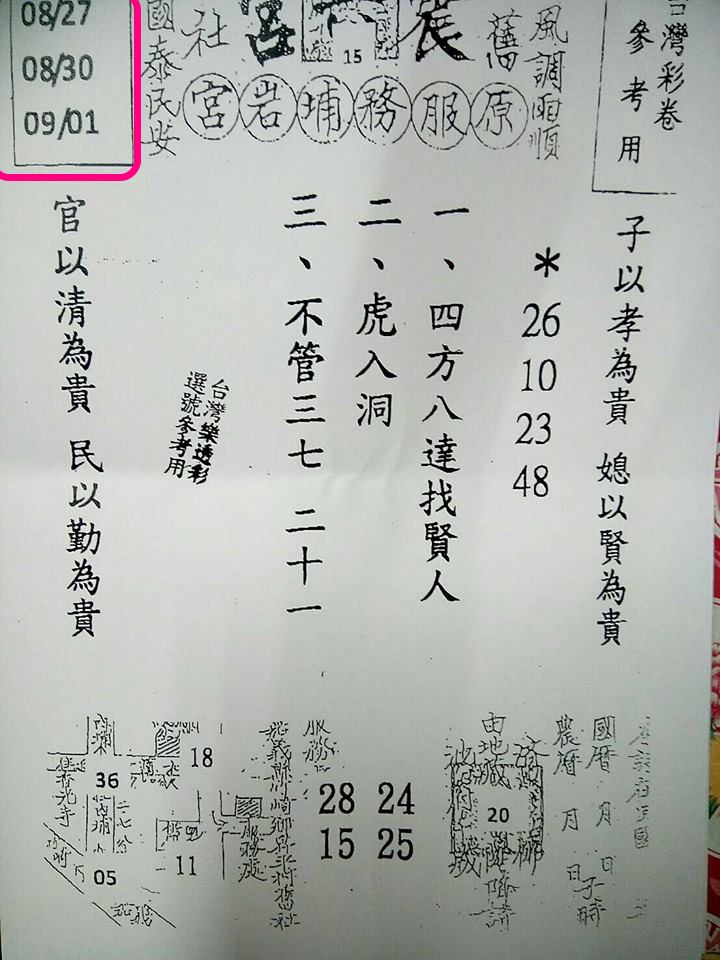 08/27
08/30
09/01
國泰民安
社
宮
15
震
舊
風調雨順
宮岩埔務服原
台灣彩卷
參考用
子以孝為貴 媳以賢為貴
*
26
10
23
48
一、四方八達找賢人
二、虎入洞
三、不管三七 二十一
台灣樂透彩
選號參考用
官以清為貴 民以勤為貴
國曆 月 日
農曆 月 日子時
20
服務
28 24
15 25
服務處
18
36
11
05